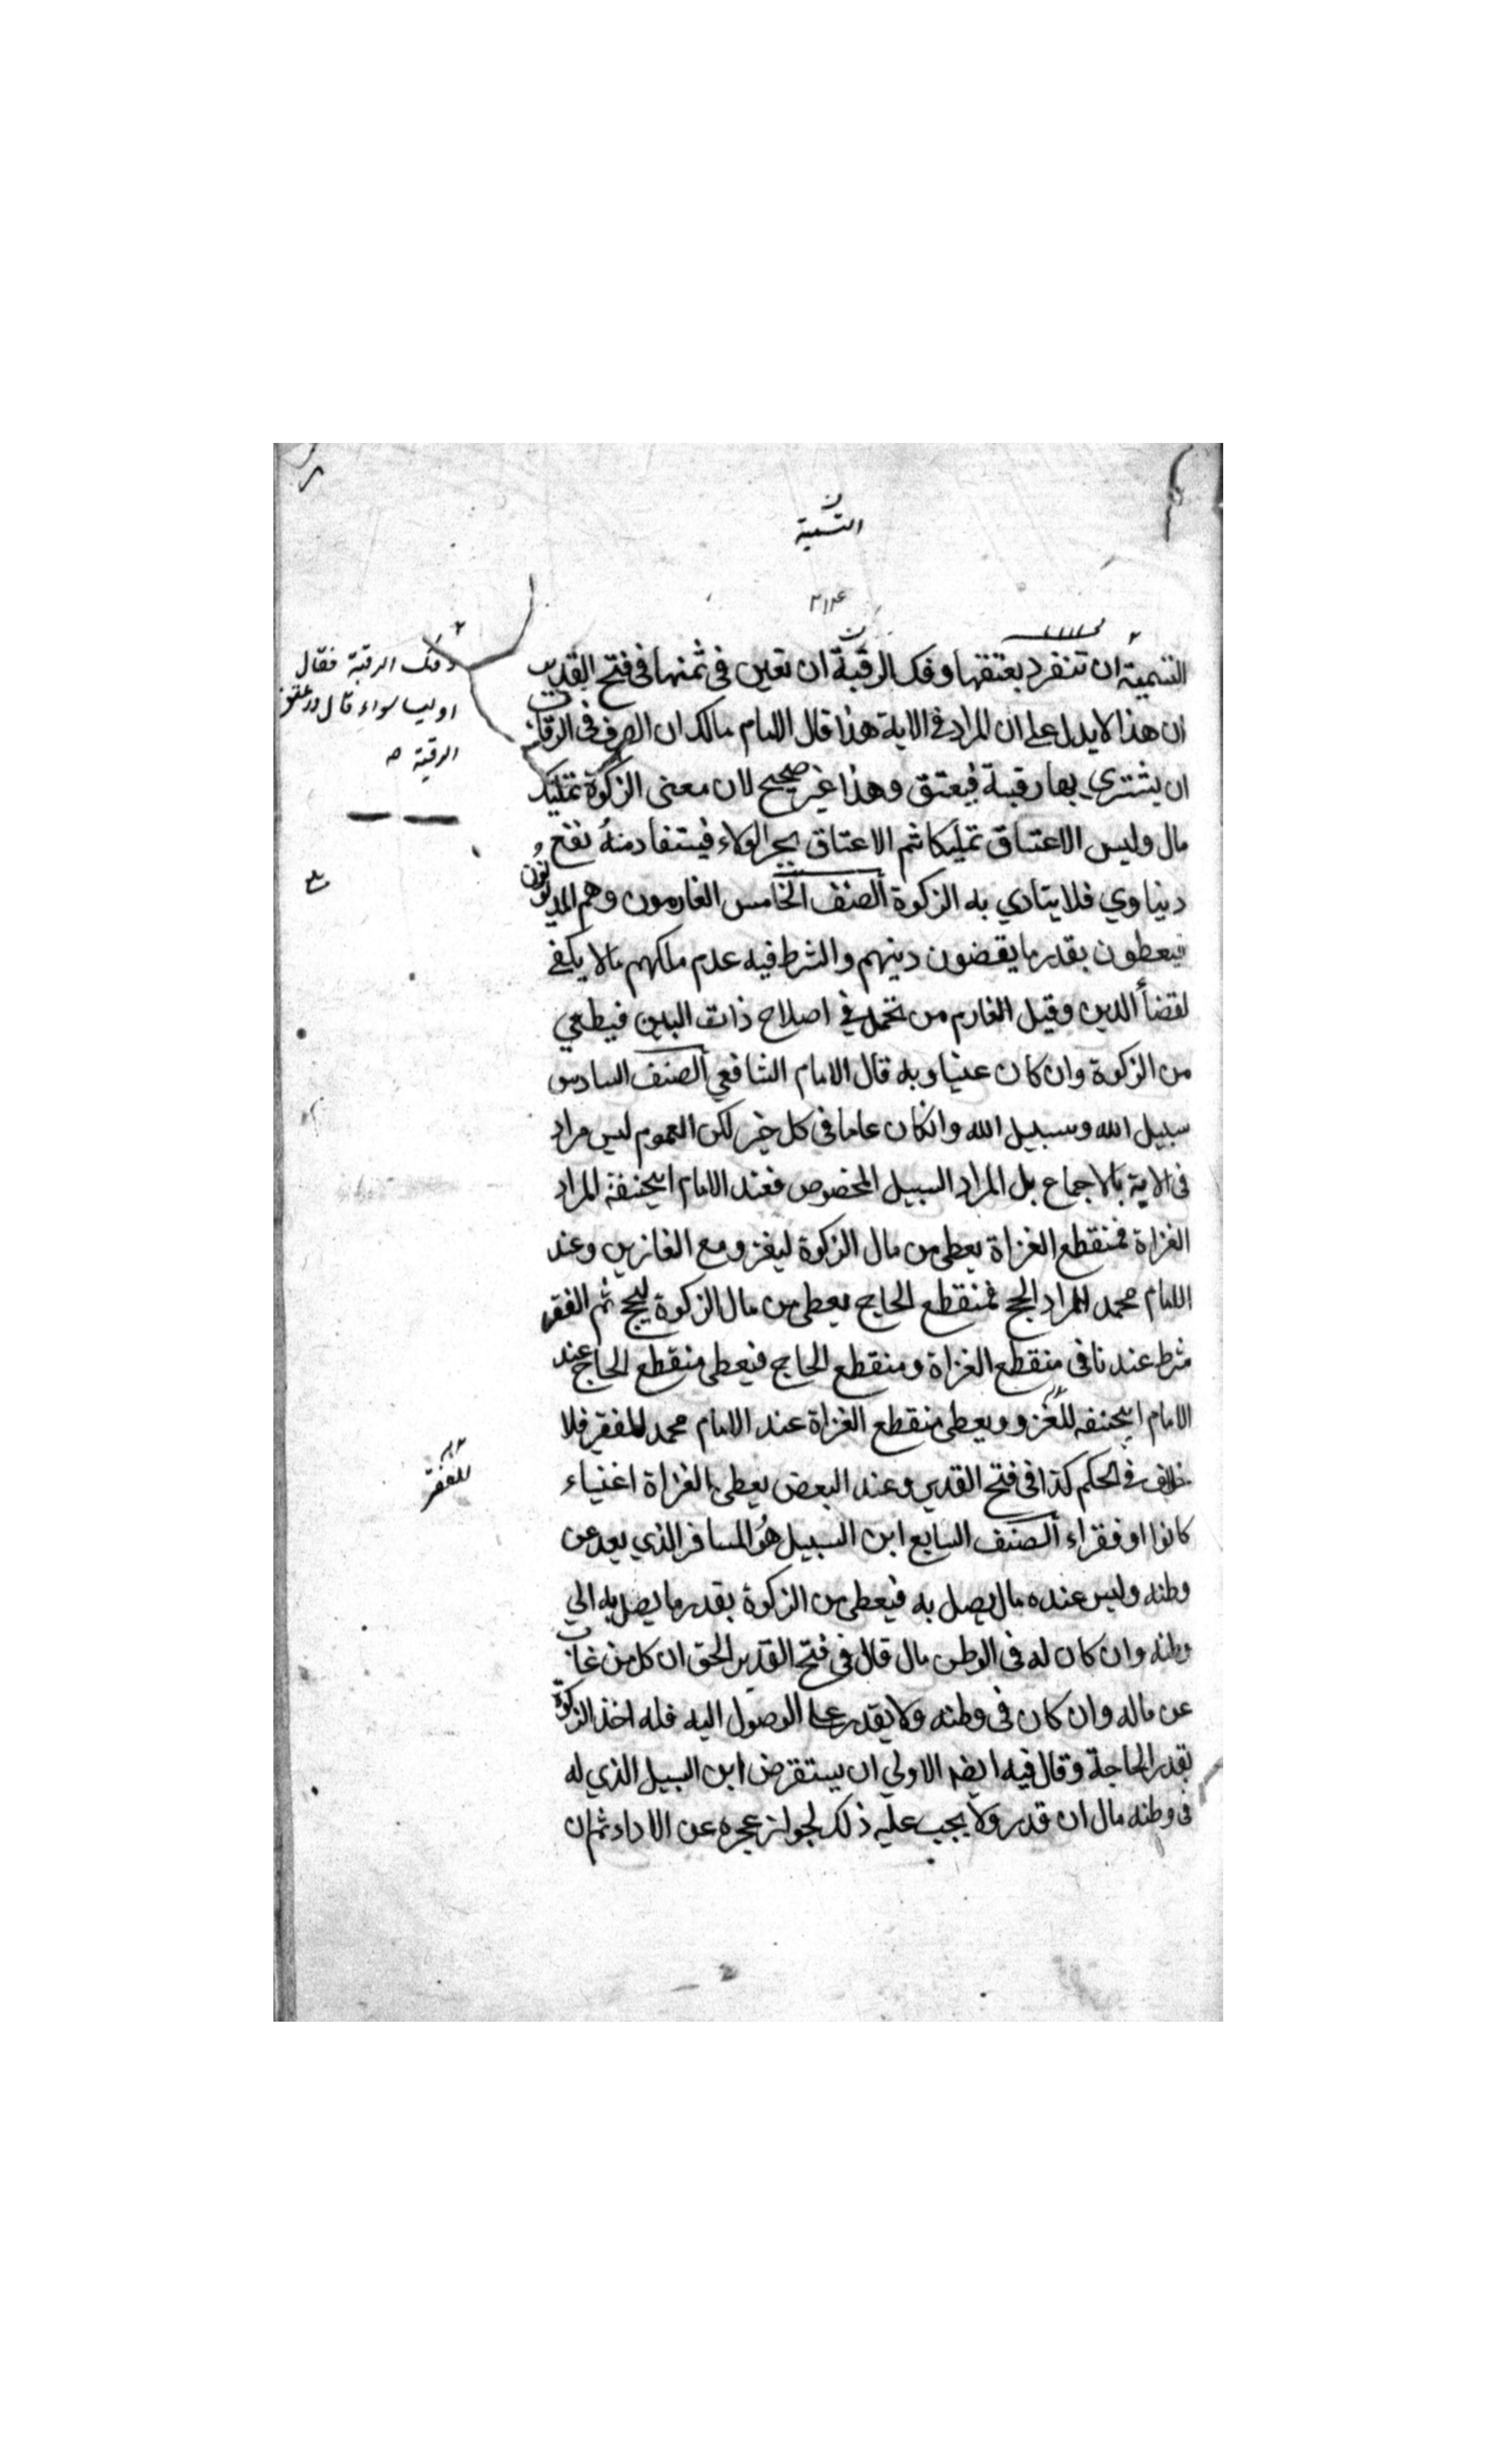 التسمية
٢١٤
التسمية ان تنفرد بعتقها وفك الرقبة ان تعين في ثمنها في فتح القدير
ان هذا لا يدل على ان المراد في الاية هذا قال الامام مالك ان الصرف في الرقاب
ان يشتري بها رقبة فيعتق وهذا غير صحيح لان معنى الزكوة تمليك
مال وليس الاعتاق تمليكا ثم الاعتاق يجر الولاء فيستفاد منه نفع
دنياوي فلا يتادي به الزكوة الصنف الخامس الغارمون وهم المديونون
فيعطون بقدر ما يقضون دينهم والشرط فيه عدم ملكهم مالا يكفي
لقضأ الدين وقيل الغارم من تحمل في اصلاح ذات البين فيطعي
من الزكوة وان كان غنيا وبه قال الامام الشافعي الصنف السادس
سبيل الله وسبيل الله وانكان عاما في كل خير لكن العموم ليس مراد
في الاية بالاجماع بل المراد السبيل المخصوص فعند الامام ابيحنيفة المراد
الغزاة فمنقطع الغزاة يعطى من مال الزكوة ليغزو مع الغازين وعند
الامام محمد المراد الحج فمنقطع الحاج يعطى من مال الزكوة ليحج ثم الفقر
شرط عندنا في منقطع الغزاة ومنقطع الحاج فيعطى منقطع الحاج عند
الامام ابيحنيفه للغزو ويعطى منقطع الغزاة عند الامام محمد للفقر فلا
خلاف في الحكم كذا في فتح القدير وعند البعض يعطى الغزاة اغنياء
كانوا او فقراء الصنف السابع ابن السبيل هو المسافر الذي بعد عن
وطنه وليس عنده مال يصل به فيعطى من الزكوة بقدر ما يصل به الي
وطنه وان كان له في الوطن مال قال في فتح القدير الحق ان كل من غاب
عن ماله وان كان في وطنه ولا يقدر على الوصول اليه فله اخذ الزكوة
بقدر الحاجة وقال فيه ايضا الاولي ان يستقرض ابن السبيل الذي له
في وطنه مال ان قدر ولا يجب عليه ذلك لجواز عجزه عن الاداء ثم ان
وفك الرقبة فقال
او ليسا سواء قال لا عتق
الرقبة
للفقر